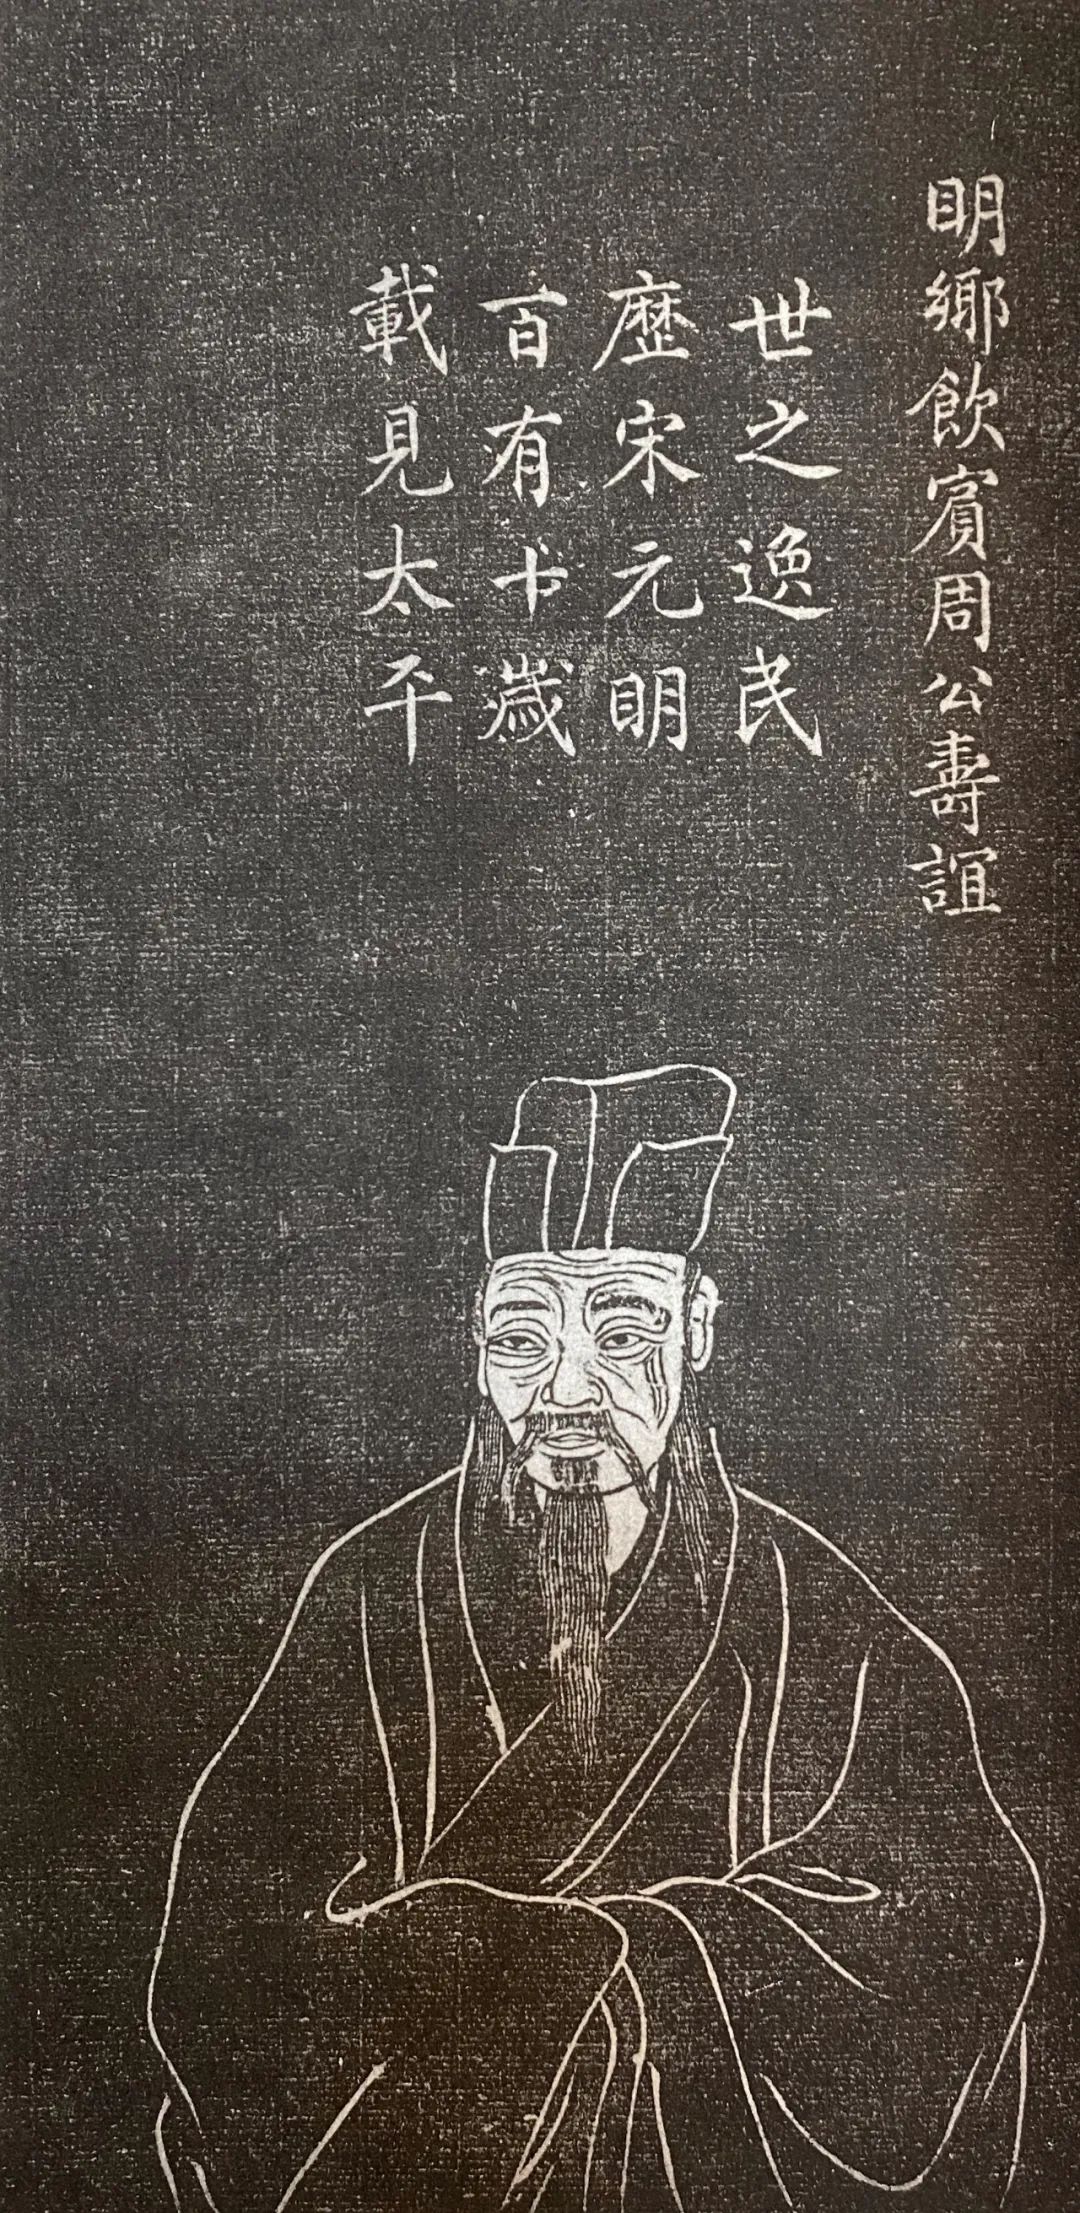 明鄉飲賓周公壽誼
世之逸民
歴宋元明
百有十歲
載見太平